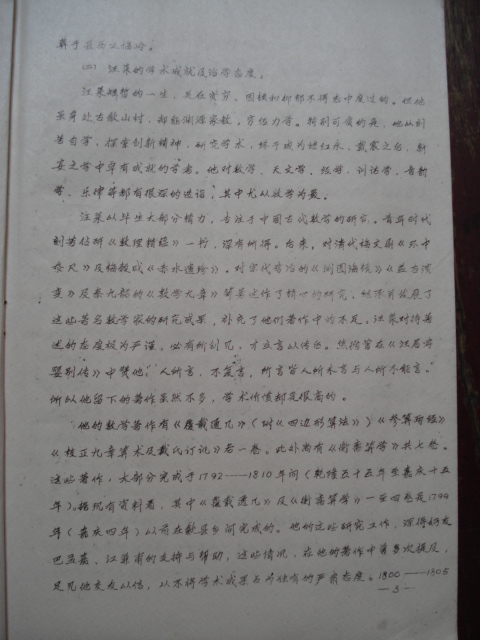 葬于县西之信岭。
(二) 汪莱的学术成就及治学态度。
汪莱短暂的一生,是在贫穷、困顿和抑郁不得志中度过的。但他
虽身处古歙山村,却能渊源家教,穷经力学。特别可贵的是,他以刻
苦自学,探索创新精神,研究学术,终于成为继江永、戴震之后,新
安之学中卓有成就的学者。他对数学、天文学、经学、训诂学、音韵
学、乐律等都有很深的造诣,其中尤以数学为最。
汪莱以毕生大部分精力,专注于中国古代数学的研究。青年时代
刻苦钻研《数理精蕴》一书,深有所得。后来,对清代梅文鼎《环中
黍尺》及梅瑴成《赤水遗珍》,对宋代李冶的《测圆海镜》《益古演
段》及秦九韶的《数学九章》等算书作了精心的研究,继承并发展了
这些著名数学家的研究成果,补充了他们著作中的不足。汪莱对待著
述的态度极为严谨,必有所创见,才立言以传世。焦循曾在《江君孝
婴别传》中赞他:人所言,不复言,所言皆人所未言与人所不能言。
所以他留下的著作虽然不多,学术价值都是很高的。
他的数学著作有《覆载通几》(附《四边形算法》)《参算两经》
《校正九章算术及戴氏订讹》各一卷。此外尚有《衡斋算学》共七卷。
这些著作,大部分完成于1792——1810年间(乾隆五十五年至嘉庆十五
年)。据现有资料看,其中《覆载通几》及《衡斋算学》一至四卷是1799
年(嘉庆四年)以前在歙县乡间完成的。他的这些研究工作,深得好友
巴孟嘉、江莱甫的支持与帮助,这些情况,在他的著作中曾多次提及,
足见他交友以信,以示得学术成果与不独有的严肃态度。1800——1805
—3—